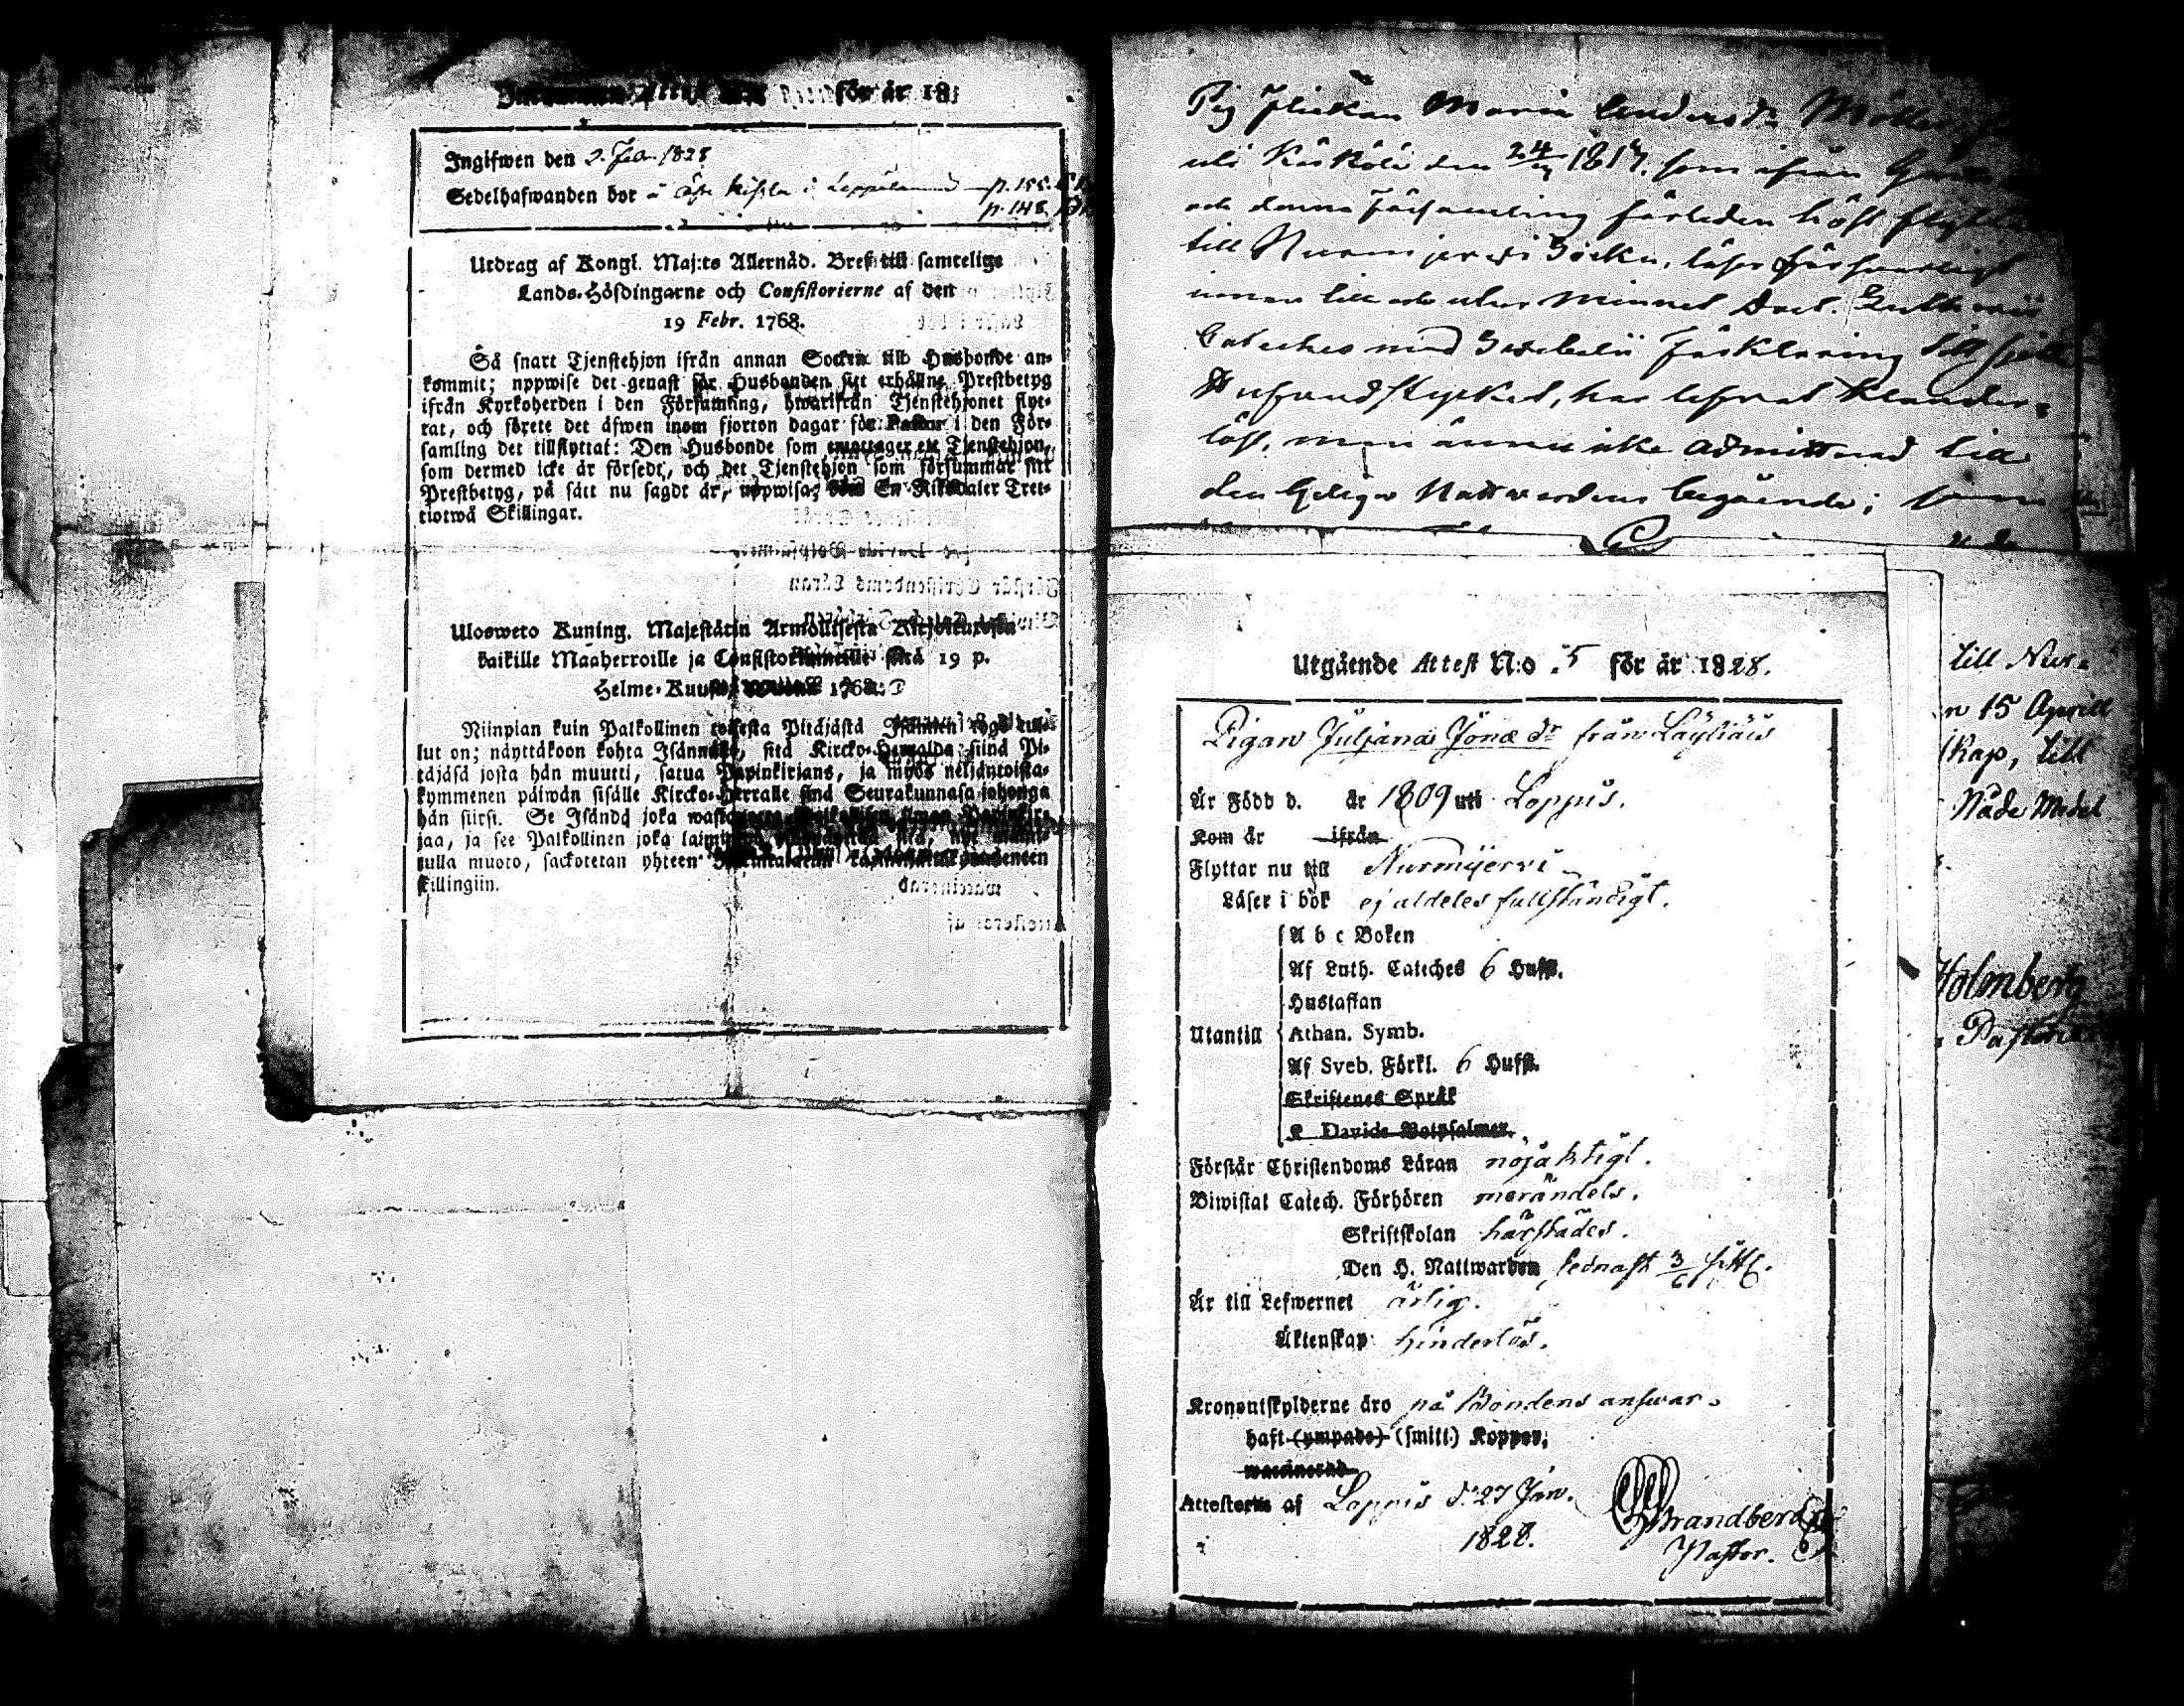 för år 18
Ingifwen den 2. Feb. 1828
Sedelhafwanden bor å Kissla i p. 155.
p. 148
Utdrag af Kongl. Maj:ts Allernåd. Bref till samtelige
Lands-Höfdingarne och Consistorierne af den
19 Febr. 1768.
Så snart Tjenstehjon ifrån annan Socken till Husbonde an-
kommit; uppwise det genast för Husbonden sitt erhållne Prestbetyg
ifrån Kyrkoherden i den Församling, hwarifrån Tjenstehjonet flyt-
tat, och förete det äfwen inom fjorton dagar för Pastor i den För-
samling det tillflyttat: Den Husbonde som emottager ett Tjenstehjon,
som dermed icke är försedt, och det Tjenstehjon som försummar sitt
Prestbetyg, på sätt nu sagdt är, uppwisa; böte En Riksdaler Tret-
tiotwå Skillingar.
Ulosweto Kuning. Majestätin Armollisesta Kirjoituxesta
kaikille Maaherroille ja Consistoriumeille siitä 19 p.
Helme-Kuusa 1768.
Niinpian kuin Palkollinen toisesta Pitäjästä Isännen tygö tul-
lut on; näyttäkoon kohta Isännälle, sitä Kircko-Herralda siinä Pi-
täjäsä josta hän muutti, saatua Papinkirjans, ja myös neljäntoista-
kymmenen päiwän sisälle Kircko-Herralle siinä Seurakunnasa johonga
hän siirsi. Se Isändä joka
jaa, ja see Palkollinen joka
tulla muoto, sackotetan yhteen
killingiin.
Pig Flickan Maria Andersdr
uti Kärkölä den 24/ 1817. som ifrån
och denna Församling förleden höst flyttade
till Nurmijerwi Socken, läser försvarligt
innan till och utur Minnet Doct. Lutheri
Cateches med Svebelii Förklaring till
Hufvudstycket, har lefvat klander-
löst, men ännu icke admitterad till
den Helige Nattvardens begående;
till Nur-
n 15 Aprill
skap, till
Nåde Medel
Holmberg
Pastor
Utgående Attest N:o 5 för år 1828.
Pigan Juljana Jonæ dr från Läyliäis
Är Född d. år 1809 uti Loppis.
Kom år ifrån
Flyttar nu till Nurmijerwi
Läser i bok ej aldeles fullständigt.
A b c Boken
Af Luth. Cateches 6 Hufst.
Hustaflan
Utantill Athan. Symb.
Af Sveb. Förkl. 6 Hufst.
Skriftenes Språk
Davids Botpsalmer.
Förstår Christendoms Läran nöjaktigt.
Biwistat Catech. Förhören merändels.
Skriftskolan härstädes.
Den H. Nattwarden sednast 3/6
Är till Lefwernet ärlig.
Äktenskap hinderlös.
Kronoutskylderne äro på Bondens answar.
haft (ympade) (smitt.) Koppor,
waccinerad
Attesteras af Loppis d. 27 Jan.
1828.
Strandberg
Pastor.